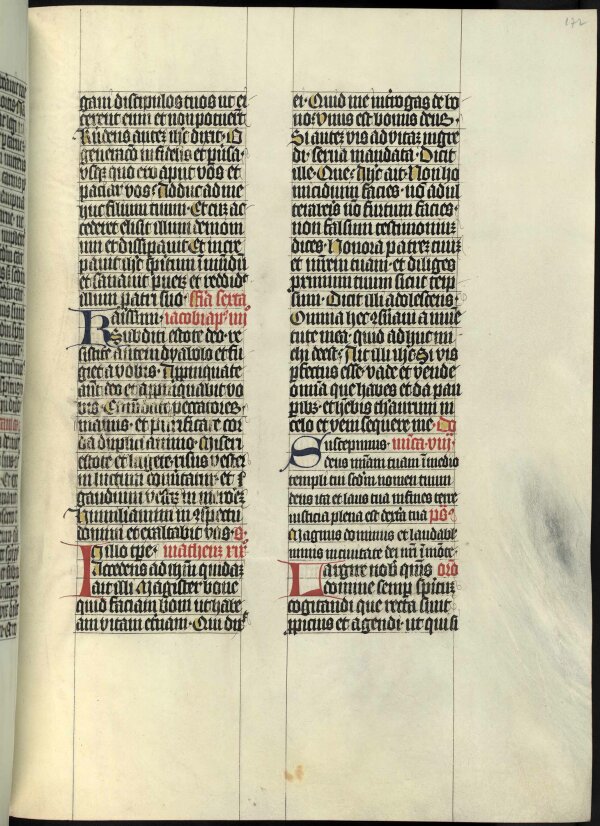 172
gam discipulos tuos ut ei
cerent eum et non potuerūt
Rñdens autez ihc dixit · O
generacō infidelis et pūsa ·
usq; quo ero aput vos et
paciar vos · Adduc ad me
huc filium tuum · Et cuz ac
cederet elisit illum demoni
um et dissipauit Et incre
pauit ihc spiritum īmūdū
et sanauit puez et reddidit
illum patri suo · fria sexta
Kaissimi · iacobi apli iiij
Subditi estote deo · re
sistite autem dyabolo et fu
giet a vobis · Appīnquate
aūt deo et appīnquabit vo
bis · Emūdate peccatores ·
manus et purificate cor
da duplici animo · Miseri
estote et lugete · risus vester
in luctum cōuertatur · et ī
gaudium vestrū in merorez
Humiliamini in ꝯspectu
domini et exaltabit vos ·
Inillo tpe · matheuz xix
Accedens ad ihm quidaz
ait illi Magister bone
quid faciam boni ut habe
am vitam eternam · Qui dix̄
ei · Quid me interrogas de bo
no · Vnus est bonus deus ·
Si autez vis ad vitaz ingre
di · serua mandata · Dicit
ille · Que · Ihc ait · Non ho
micidium facies · nō adul
teraberis nō furtum facies ·
non falsum testimoniuz
dices · Honora patrez tuuz
et mrem tuam · et diliges
primum tuum sicut teip
sum · Dicit illi adolescens ·
Omnia hec ꝯseruaui a iuue
tute mea · quid adhuc mi
chi deest · Ait illi ihc Si vis
pfectus esse · vade et vende
omnia que habes et da pau
peribz · et hēbis thesaurum in
celo et veni sequere me · Do
Suscepimus · mīca · viij ·
deus miam tuam in medio
templi tui sedm nomen tuum
deus ita et laus tua in fines terre
iusticia plena est dextra tua ps ·
Magnus dominus et laudabi
nimis in ciuitate dei nrī ī mōte ·
Largire nob qūs orō
domine semp spirituz
cogitandi que recta sunt
ppicius et agendi · ut qui si